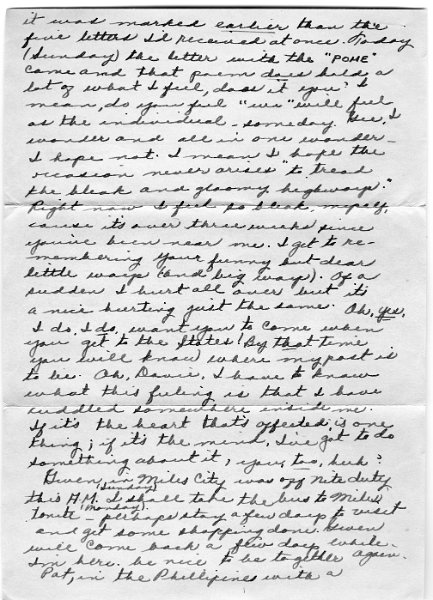 it was marked earlier than the
five letters I'd received at once. Today
(Sunday) the letter with the "POME"
came and that poem does hold a
lot of what I feel, does it you? I
mean, do you feel "we" will feel
as the individual - someday. Gee, I
wonder and all in one wonder -
I hope not. I mean I hope the
occasion never arises "to tread
the bleak and gloomy highways."
Right now I feel so bleak, myself,
cause it's over three weeks since
you've been near me. I get to re-
membering your funny but dear
little ways (and big ways). Of a
sudden I hurt all over but it's
a nice hurting just the same. Oh, yes,
I do, I do, want you to come when
you get to the States! (By that time
you will know) where my post is
to be. Oh, Davie, I have to know
what this feeling is that I have
cuddled somewhere inside me.
If it's the heart that's affected, is one
thing; if it's the mind, I've got to do
something about it, you, too, huh?
Gwen, in Miles City was off Nite duty
this A.M. (Sunday) I shall take the bus to Miles
tonite (Monday) - perhaps stay a few days to visit
and get some shopping done. Gwen
will come back a few days while
I'm here. be nice to be together again.
Pat, in the Phillipines with a